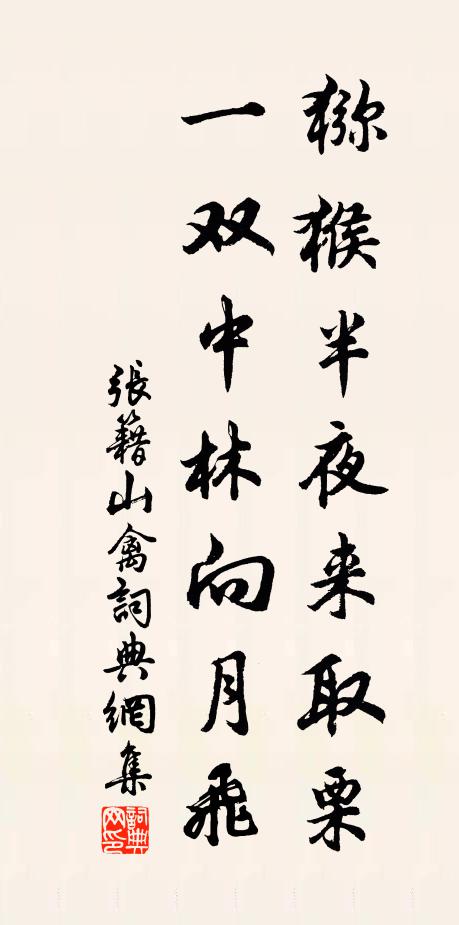 猕猴半夜来取栗
一双中林向月飞
張籍山禽詞典網集
詞典网印